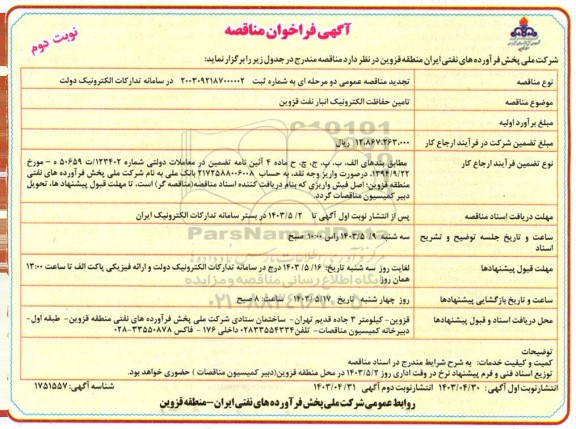 آگهی فراخوان مناقصه
نوبت دوم
شرکت ملی پخش فرآورده های نفتی ایران منطقه قزوین در نظر دارد مناقصه مندرج در جدول زیر را برگزار نماید:
نوع مناقصه
تجدید مناقصه عمومی دو مرحله ای به شماره ثبت ۲۰۰۳۰۹۲۱۸۷۰۰۰۰۰۲ در سامانه تدارکات الکترونیک دولت
موضوع مناقصه
تامین حفاظت الکترونیک انبار نفت قزوین
مبلغ برآورد اولیه
مبلغ تضمین شرکت در فرآیند ارجاع کار
۱۲,۸۶۷,۲۶۳,۰۰۰ ریال
نوع تضمین فرآیند ارجاع کار
مطابق بندهای الف، ب، پ، ج، چ، ح ماده ۴ آئین نامه تضمین در معاملات دولتی شماره ۱۲۳۴۰۲/ت ۵۰۶۵۹ ه – مورخ
۱۳۹۴/۹/۲۲. درصورت واریز وجه نقد، به حساب ۲۱۷۲۵۸۸۰۰۶۰۰۸ بانک ملی به نام شرکت ملی پخش فرآورده های نفتی
منطقه قزوین؛ اصل فیش واریزی که بنام دریافت کننده اسناد مناقصه(مناقصه گر) است، تا مهلت قبول پیشنهاد ها، تحویل
دبیر کمیسیون مناقصات گردد.
مهلت دریافت اسناد مناقصه
پس از انتشار نوبت اول آگهی تا ۱۴۰۳/۵/۲ در بستر سامانه تدارکات الکترونیک ایران
ساعت و تاریخ جلسه توضیح و تشریح
اسناد
سه شنبه ۱۴۰۳/۵/۹ راس ۱۰:۰۰ صبح
مهلت قبول پیشنهادها
لغایت روز سه شنبه تاریخ: ۱۴۰۳/۵/۱۶ درج در سامانه تدارکات الکترونیک دولت و ارائه فیزیکی پاکت الف تا ساعت ۱۳:۰۰
همان روز
ساعت و تاریخ بازگشایی پیشنهادها
روز چهار شنبه تاریخ ۱۴۰۳/۵/۱۷ ساعت: ۸ صبح
محل دریافت اسناد و قبول پیشنهادها
قزوین- کیلومتر ۳ جاده قدیم تهران- ساختمان ستادی شرکت ملی پخش فرآورده های نفتی منطقه قزوین- طبقه اول-
دبیرخانه کمیسیون مناقصات- تلفن ۰۲۸۳۳۵۵۴۳۳۴ داخلی ۱۷۶ - فاکس ۳۳۵۵۰۸۷۸-۰۲۸
توضیحات
کمیت و کیفیت خدمات: به شرح شرایط مندرج در اسناد مناقصه
توزیع اسناد فنی و فرم پیشنهاد نرخ در وقت اداری روز ۱۴۰۳/۵/۲ در محل منطقه قزوین(دبیر کمیسیون مناقصات ) حضوری خواهد بود.
انتشار نوبت اول آگهی: ۱۴۰۳/۰۴/۳۰ انتشار نوبت دوم آگهی ۱۴۰۳/۰۴/۳۱
شناسه آگهی: ۱۷۵۱۵۵۷
روابط عمومی شرکت ملی پخش فرآورده های نفتی ایران – منطقه قزوین
ParsNamadData